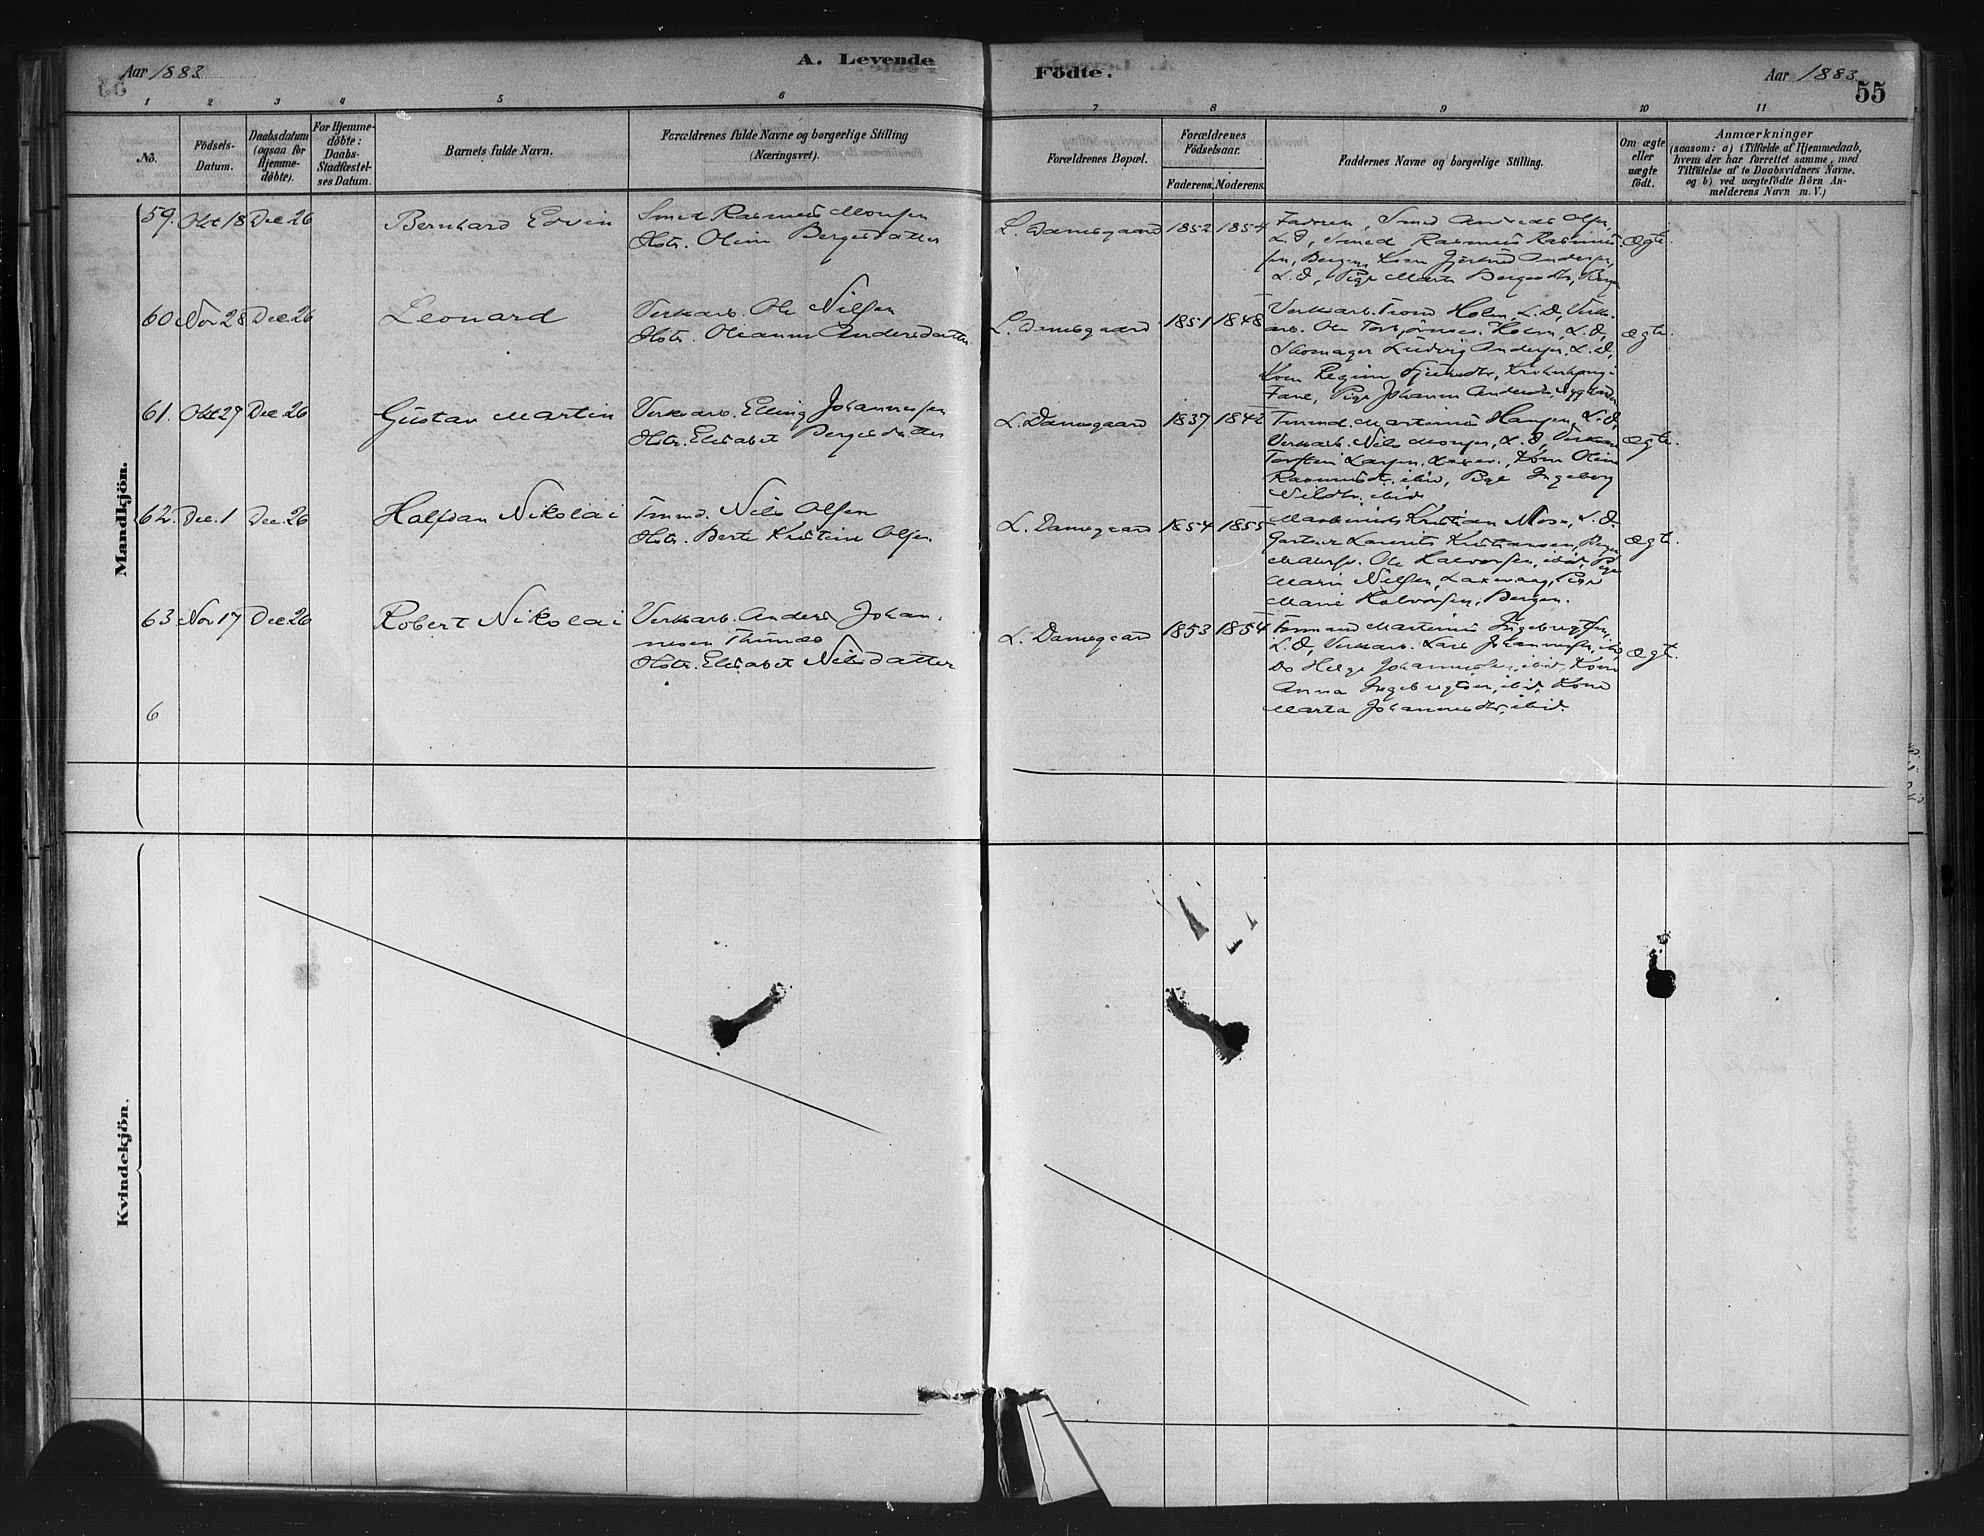 Aar 1883
A. Levende
Födte.
Aar 1883
55
1 2 3 4 5 6 7 8 9 10 11
No.
Födsels-
Datum.
Daabsdatum
(ogsaa for
Hjemme-
döbte).
For Hjemme-
döbte:
Daabs-
Stadfæstel-
ses Datum.
Barnets fulde Navn.
Forældrenes fulde Navne og borgerlige Stilling
(Næringsvei).
Forældrenes Bopæl.
Forældrenes
Födselsaar.
Faderens. Moderens.
Faddernes Navne og borgerlige Stilling.
Om ægte
eller
uægte
födt.
Anmærkninger
(saasom: a) i Tilfælde af Hjemmedaab,
hvem der har forrettet samme, med
Tilföielse af to Daabsvidners Navne.
og b) ved uægtefödte Börn An-
melderens Navn m. V.)
Mandkjön.
59. Okt 18 Dec 26 Bernhard Edvin
Smed Rasmus Monsen
Hstr. Oline Bergesdatter
L. Damsgaard 1852 1854
Faderen, Smed Andreas Olsen,
L. D, Smed Rasmus Rasmus-
sen, Bergen, Kone Gjertrud Andersen,
L. D, Pige Marta Bergesdtr, Bergen
ægte.
60 Nov 28 Dec. 26 Leonard
Verksarb. Ole Nilsen
Hstr. Olianna Andersdatter
L. Damsgaard 1851 1848
Verksarb. Trond Holm, L. D, Verks-
arb. Ole Torbjörnsen Holm, L. D,
Skomager Ludvig Andersen, L. D,
Kone Regine
Fane, Pige Johanna Andersdtr,
ægte.
61. Okt 27 Dec 26 Gustav Martin
Verksarb. Elling Johannesen
Hstr. Elisabet Bergesdatter
L. Damsgaard 1837 1842
Tmmd. Martinus Hansen, L. D,
Verksarb. Nils Monsen, L. D, Verksarb
Torstein Larsen, Laxev., Kone Oline
Rasmusdtr. ibid, Pige Ingeborg
Nilsdtr. ibid
ægte.
62. Dec. 1 Dec. 26 Halfdan Nikolai
Tmmd. Nils Olsen
Hstr. Berte Kristine Olsen
L. Damsgaard 1854 1855
Maskinist Kristian Moss, L. D.
Gartner Laurits Kristiansen, Bergen
Ole Halvorsen, ibid, Pige
Marie Nilsen, Laxevaag, Pige
Marie Halvorsen, Bergen.
ægt.
63 Nov 17 Dec 26 Robert Nikolai
Verksarb. Anders Johan-
nesen Thunæs
Hstr. Elisabet Nilsdatter
L. Damsgaard 1853 1854
Tømmermand Martinus Ingebrigtsen,
L. D, Verksarb. Lars Johannesen, ibid,
Do Helge Johannesen, ibid, Kone
Anna Ingebrigtsen, ibid, Kone
Marta Johannesdtr, ibid.
ægt.
6
Kvindekjön.